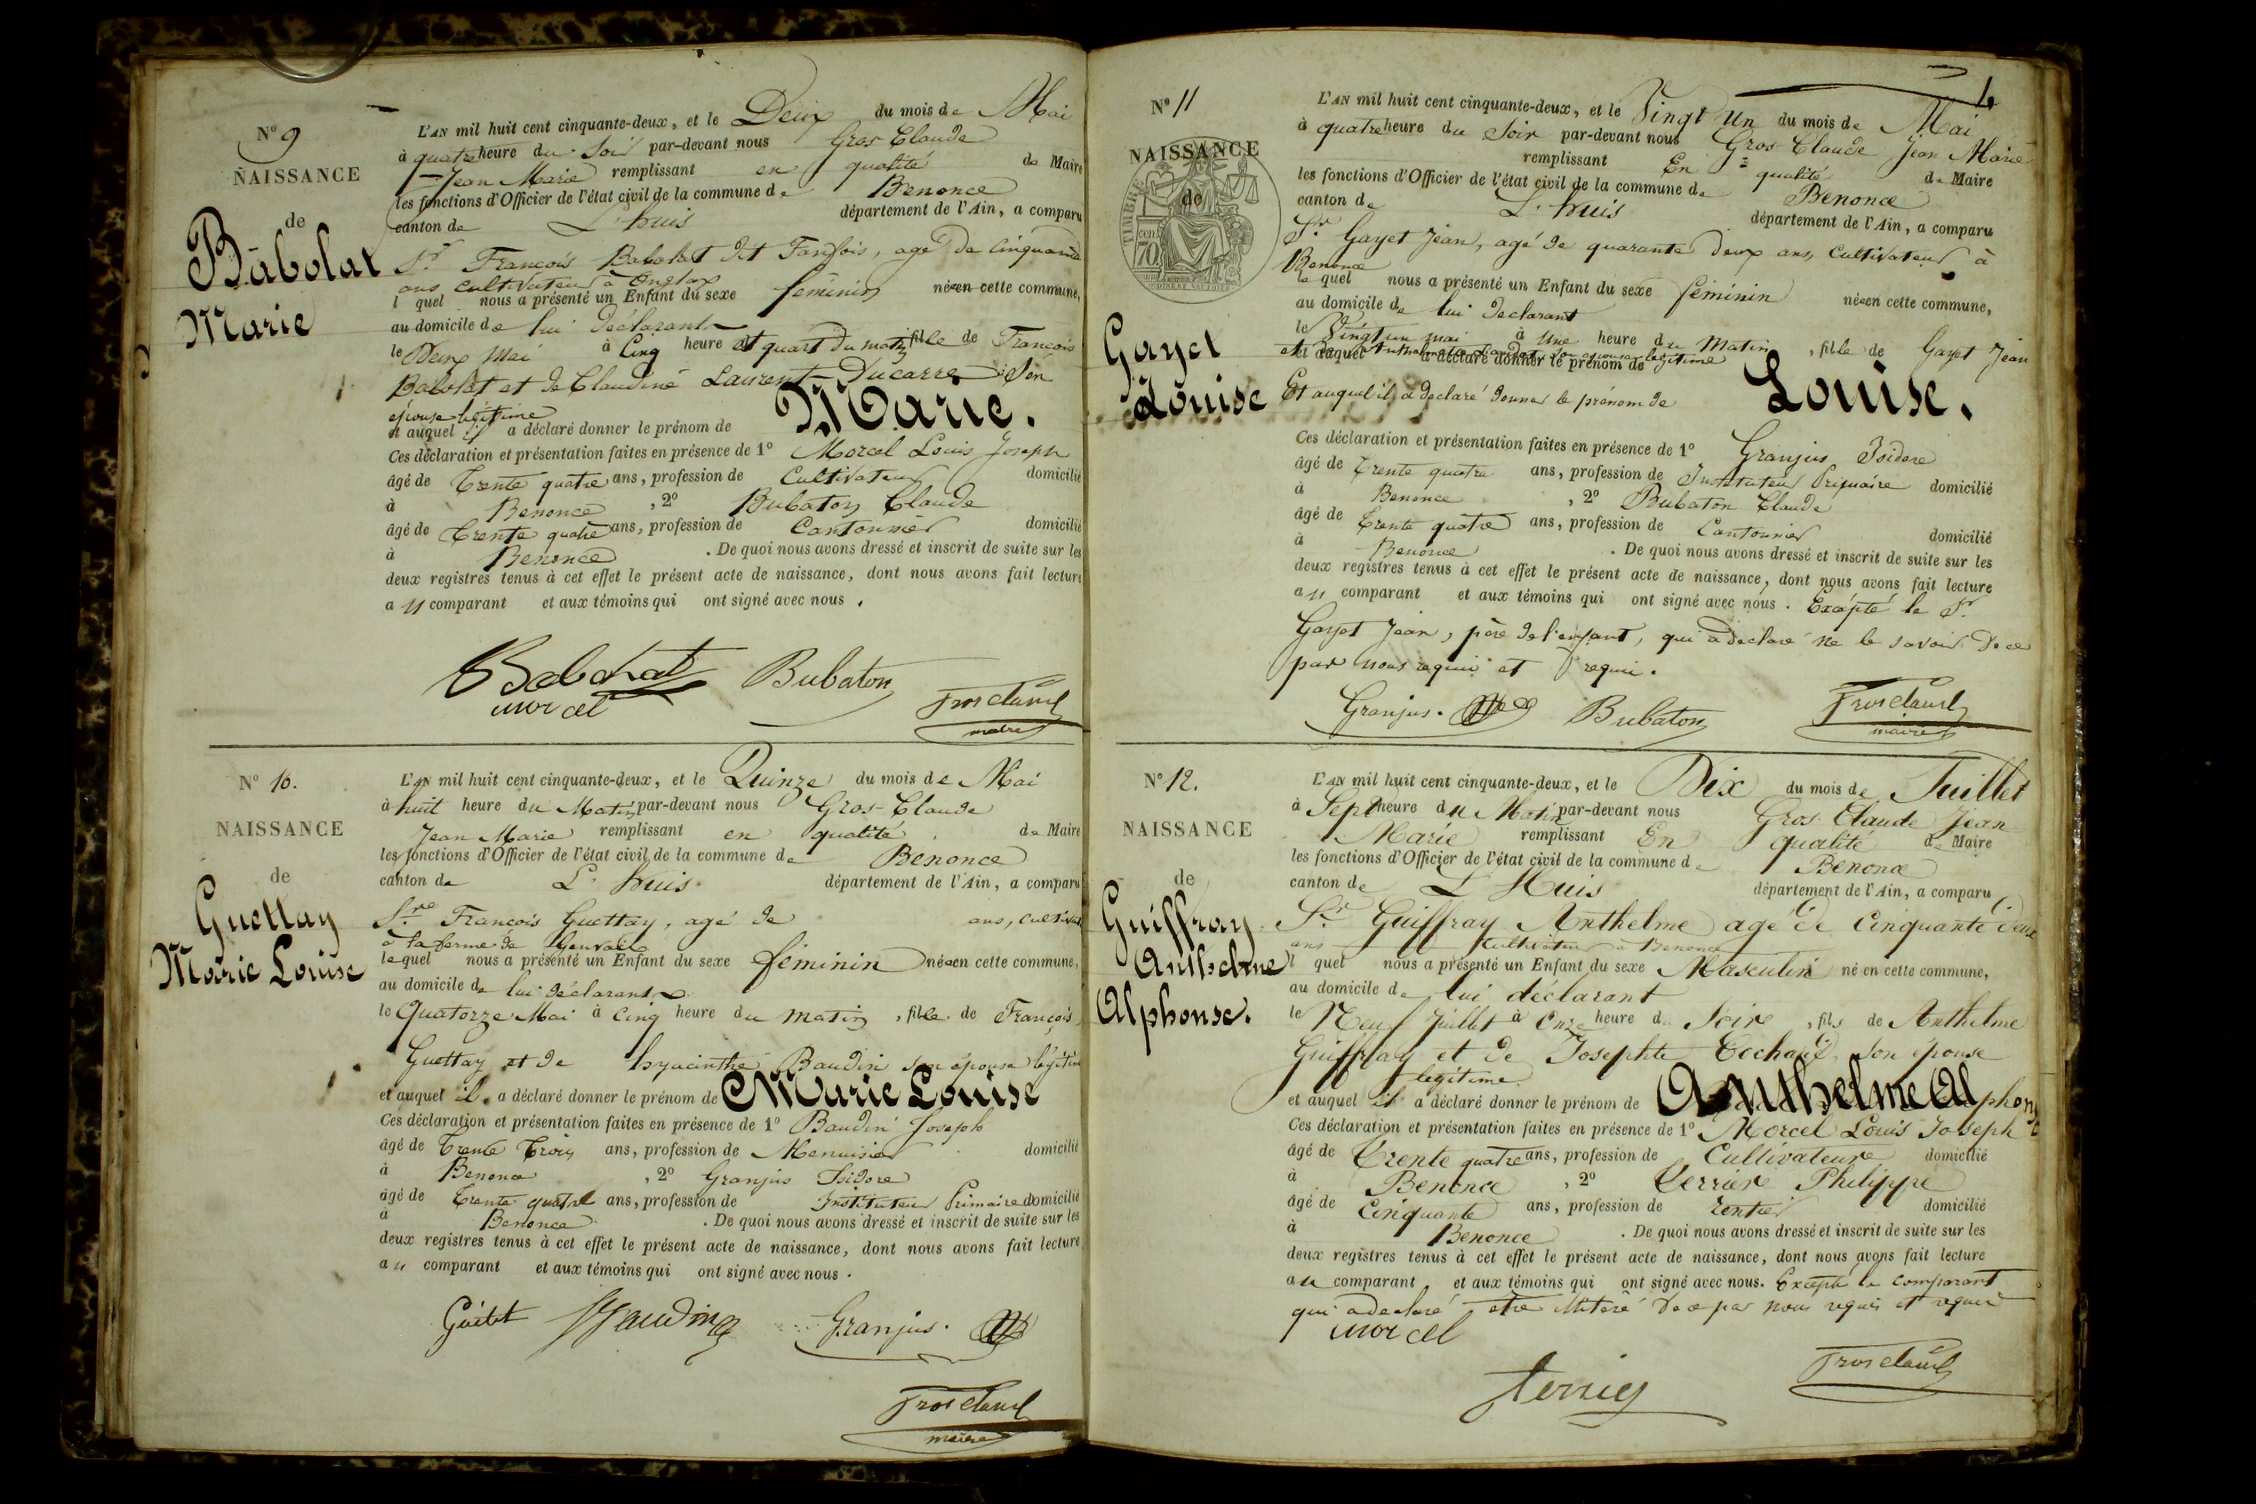 Nº 9
NAISSANCE
de
Babolat
Marie
L'AN mil huit cent cinquante-deux, et le Deux du mois de Mai
à quatre heure du Soir par-devant nous Gros Claude
Jean Marie remplissant en qualité de Maire
les fonctions d'Officier de l'état civil de la commune de Benonce
canton de L'huis département de l'Ain, a comparu
Sr François Babolat dit Fanfois, agé de Cinquante
ans cultivateur à Onglas
l quel nous a présenté un Enfant du sexe féminin née en cette commune,
au domicile de lui déclarant
le Deux Mai à Cinq heure et quart du matin fille de François
Babolat et de Claudine Laurent Ducarre Son
épouse légitime
et auquel il a déclaré donner le prénom de Marie.
Ces déclaration et présentation faites en présence de 1º Morcel Louis Joseph
âgé de Trente quatre ans, profession de Cultivateur domicilié
à Benonce , 2º Bubaton Claude
âgé de Trente quatre ans, profession de Cantonnier domicilié
à Benonce . De quoi nous avons dressé et inscrit de suite sur les
deux registres tenus à cet effet le présent acte de naissance, dont nous avons fait lecture
au comparant et aux témoins qui ont signé avec nous .
Babolat Bubaton
morcel
Grosclaude
maire
Nº 10.
NAISSANCE
de
Guettay
Marie Louise
L'AN mil huit cent cinquante-deux, et le Quinze du mois de Mai
à huit heure du Matin par-devant nous Gros-Claude
Jean Marie remplissant en qualité de Maire
les fonctions d'Officier de l'état civil de la commune de Benonce
canton de L'huis. département de l'Ain, a comparu
Sre François Guettay, agé de ans, cultivat
à la ferme de
lequel nous a présenté un Enfant du sexe féminin née en cette commune,
au domicile de lui déclarant
le Quatorze Mai à Cinq heure du matin , fille de François
Guettay et de hyacinthe Baudin son épouse légitime
et auquel il a déclaré donner le prénom de Marie Louise
Ces déclaration et présentation faites en présence de 1º Baudin Joseph
âgé de Trente Trois ans, profession de Menuisier domicilié
à Benonce , 2º Granjus Isidore
âgé de Trente quatre ans, profession de Instituteur Primaire domicilié
à Benonce . De quoi nous avons dressé et inscrit de suite sur les
deux registres tenus à cet effet le présent acte de naissance, dont nous avons fait lecture
au comparant et aux témoins qui ont signé avec nous .
Guétet Baudin Granjus.
Grosclaude
maire
Nº 11
NAISSANCE
de
TIMBRE
cen.
70
Gayet
Louise
L'AN mil huit cent cinquante-deux, et le Vingt Un du mois de Mai
à quatre heure du Soir par-devant nous Gros-Claude Jean Marie
remplissant En qualité de Maire
les fonctions d'Officier de l'état civil de la commune de Benonce
canton de L'huis département de l'Ain, a comparu
Sr. Gayet Jean, agé de quarante deux ans, Cultivateur à
Benonce
le quel nous a présenté un Enfant du sexe féminin née en cette commune,
au domicile de lui déclarant
le Vingt un mai à Une heure du Matin , fille de Gayet Jean
et auquel a déclaré donner le prénom de son épouse légitime
Et auquel il a déclaré donner le prénom de Louise.
Ces déclaration et présentation faites en présence de 1º Granjus Isidore
âgé de Trente quatre ans, profession de Instituteur Primaire domicilié
à Benonce , 2º Bubaton Claude
âgé de Trente quatre ans, profession de Cantonnier domicilié
à Benonce . De quoi nous avons dressé et inscrit de suite sur les
deux registres tenus à cet effet le présent acte de naissance, dont nous avons fait lecture
au comparant et aux témoins qui ont signé avec nous . Excépté le Sr
Gayet Jean, père de l'enfant, qui a déclaré ne le savoir De ce
par nous requis et requi.
Granjus. Bubaton Grosclaude
maire
Nº 12.
NAISSANCE
de
Guiffray
Anthelme
Alphonse.
L'AN mil huit cent cinquante-deux, et le Dix du mois de Juillet
à Sept heure du Matin par-devant nous Gros-Claude Jean
Marie remplissant En qualité de Maire
les fonctions d'Officier de l'état civil de la commune de Benonce
canton de L'Huis département de l'Ain, a comparu
Sr Guiffray Anthelme agé de Cinquante deux
ans Cultivateur à Benonce
l quel nous a présenté un Enfant du sexe Masculin né en cette commune,
au domicile de lui déclarant
le Neuf Juillet à Onze heure du Soire , fils de Anthelme
Guiffray et de Josephte son épouse
légitime
et auquel il a déclaré donner le prénom de Anthelme Alphonse
Ces déclaration et présentation faites en présence de 1º Morcel Louis Joseph
âgé de Trente quatre ans, profession de Cultivateure domicilié
à Benonce , 2º Verrier Philippe
âgé de Cinquante ans, profession de rentier domicilié
à Benonce . De quoi nous avons dressé et inscrit de suite sur les
deux registres tenus à cet effet le présent acte de naissance, dont nous avons fait lecture
au comparant, et aux témoins qui ont signé avec nous. Excepté le comparant
qui a déclaré etre illiteré De ce par nous requis et requi
morcel
Grosclaude